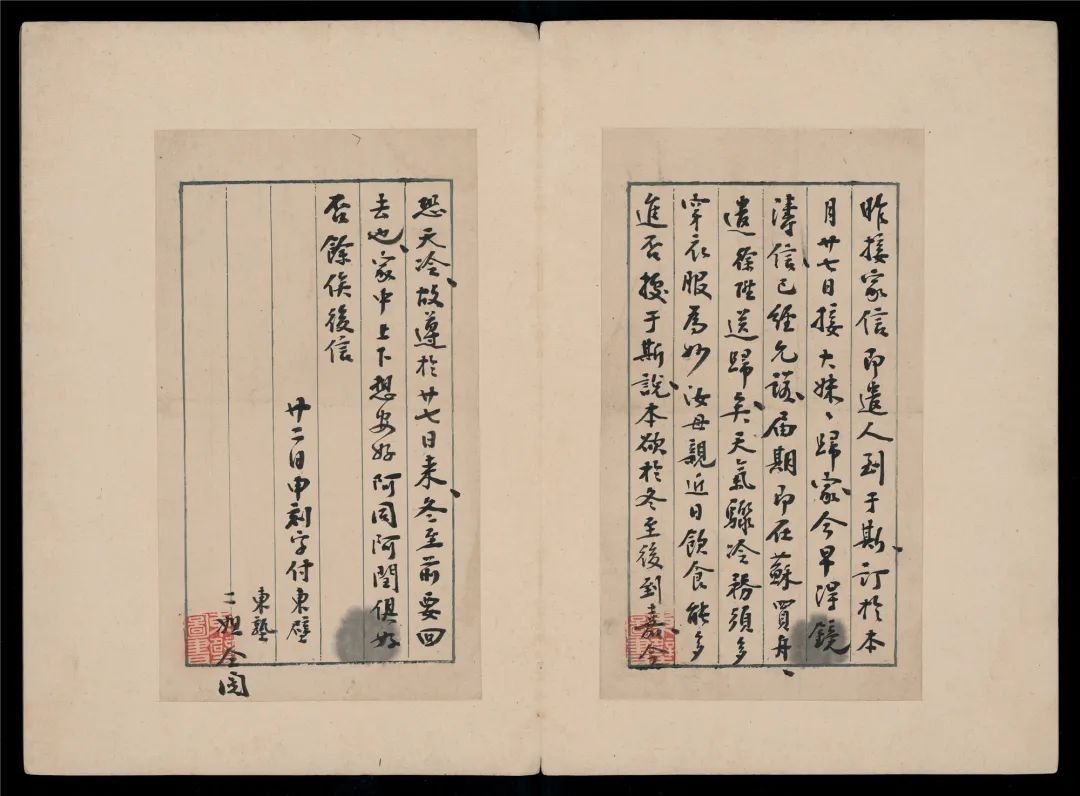 昨接家信即遣人到于斯訂於本
月廿七日接大妹、歸家今早得鏡
濤信已經允諾屆期即在蘇買舟
遣徐陞送歸矣天氣驟冷務須多
穿衣服為妙汝母親近日飲食能多
進否據于斯說本欲於冬至後到嘉今
恐天冷故遵於廿七日来冬至前要回
去也家中上下想安好阿同阿閏俱好
否餘俟後信
廿二日申刻字付東壁
東塾
二姐仝閱
圖書
圖書